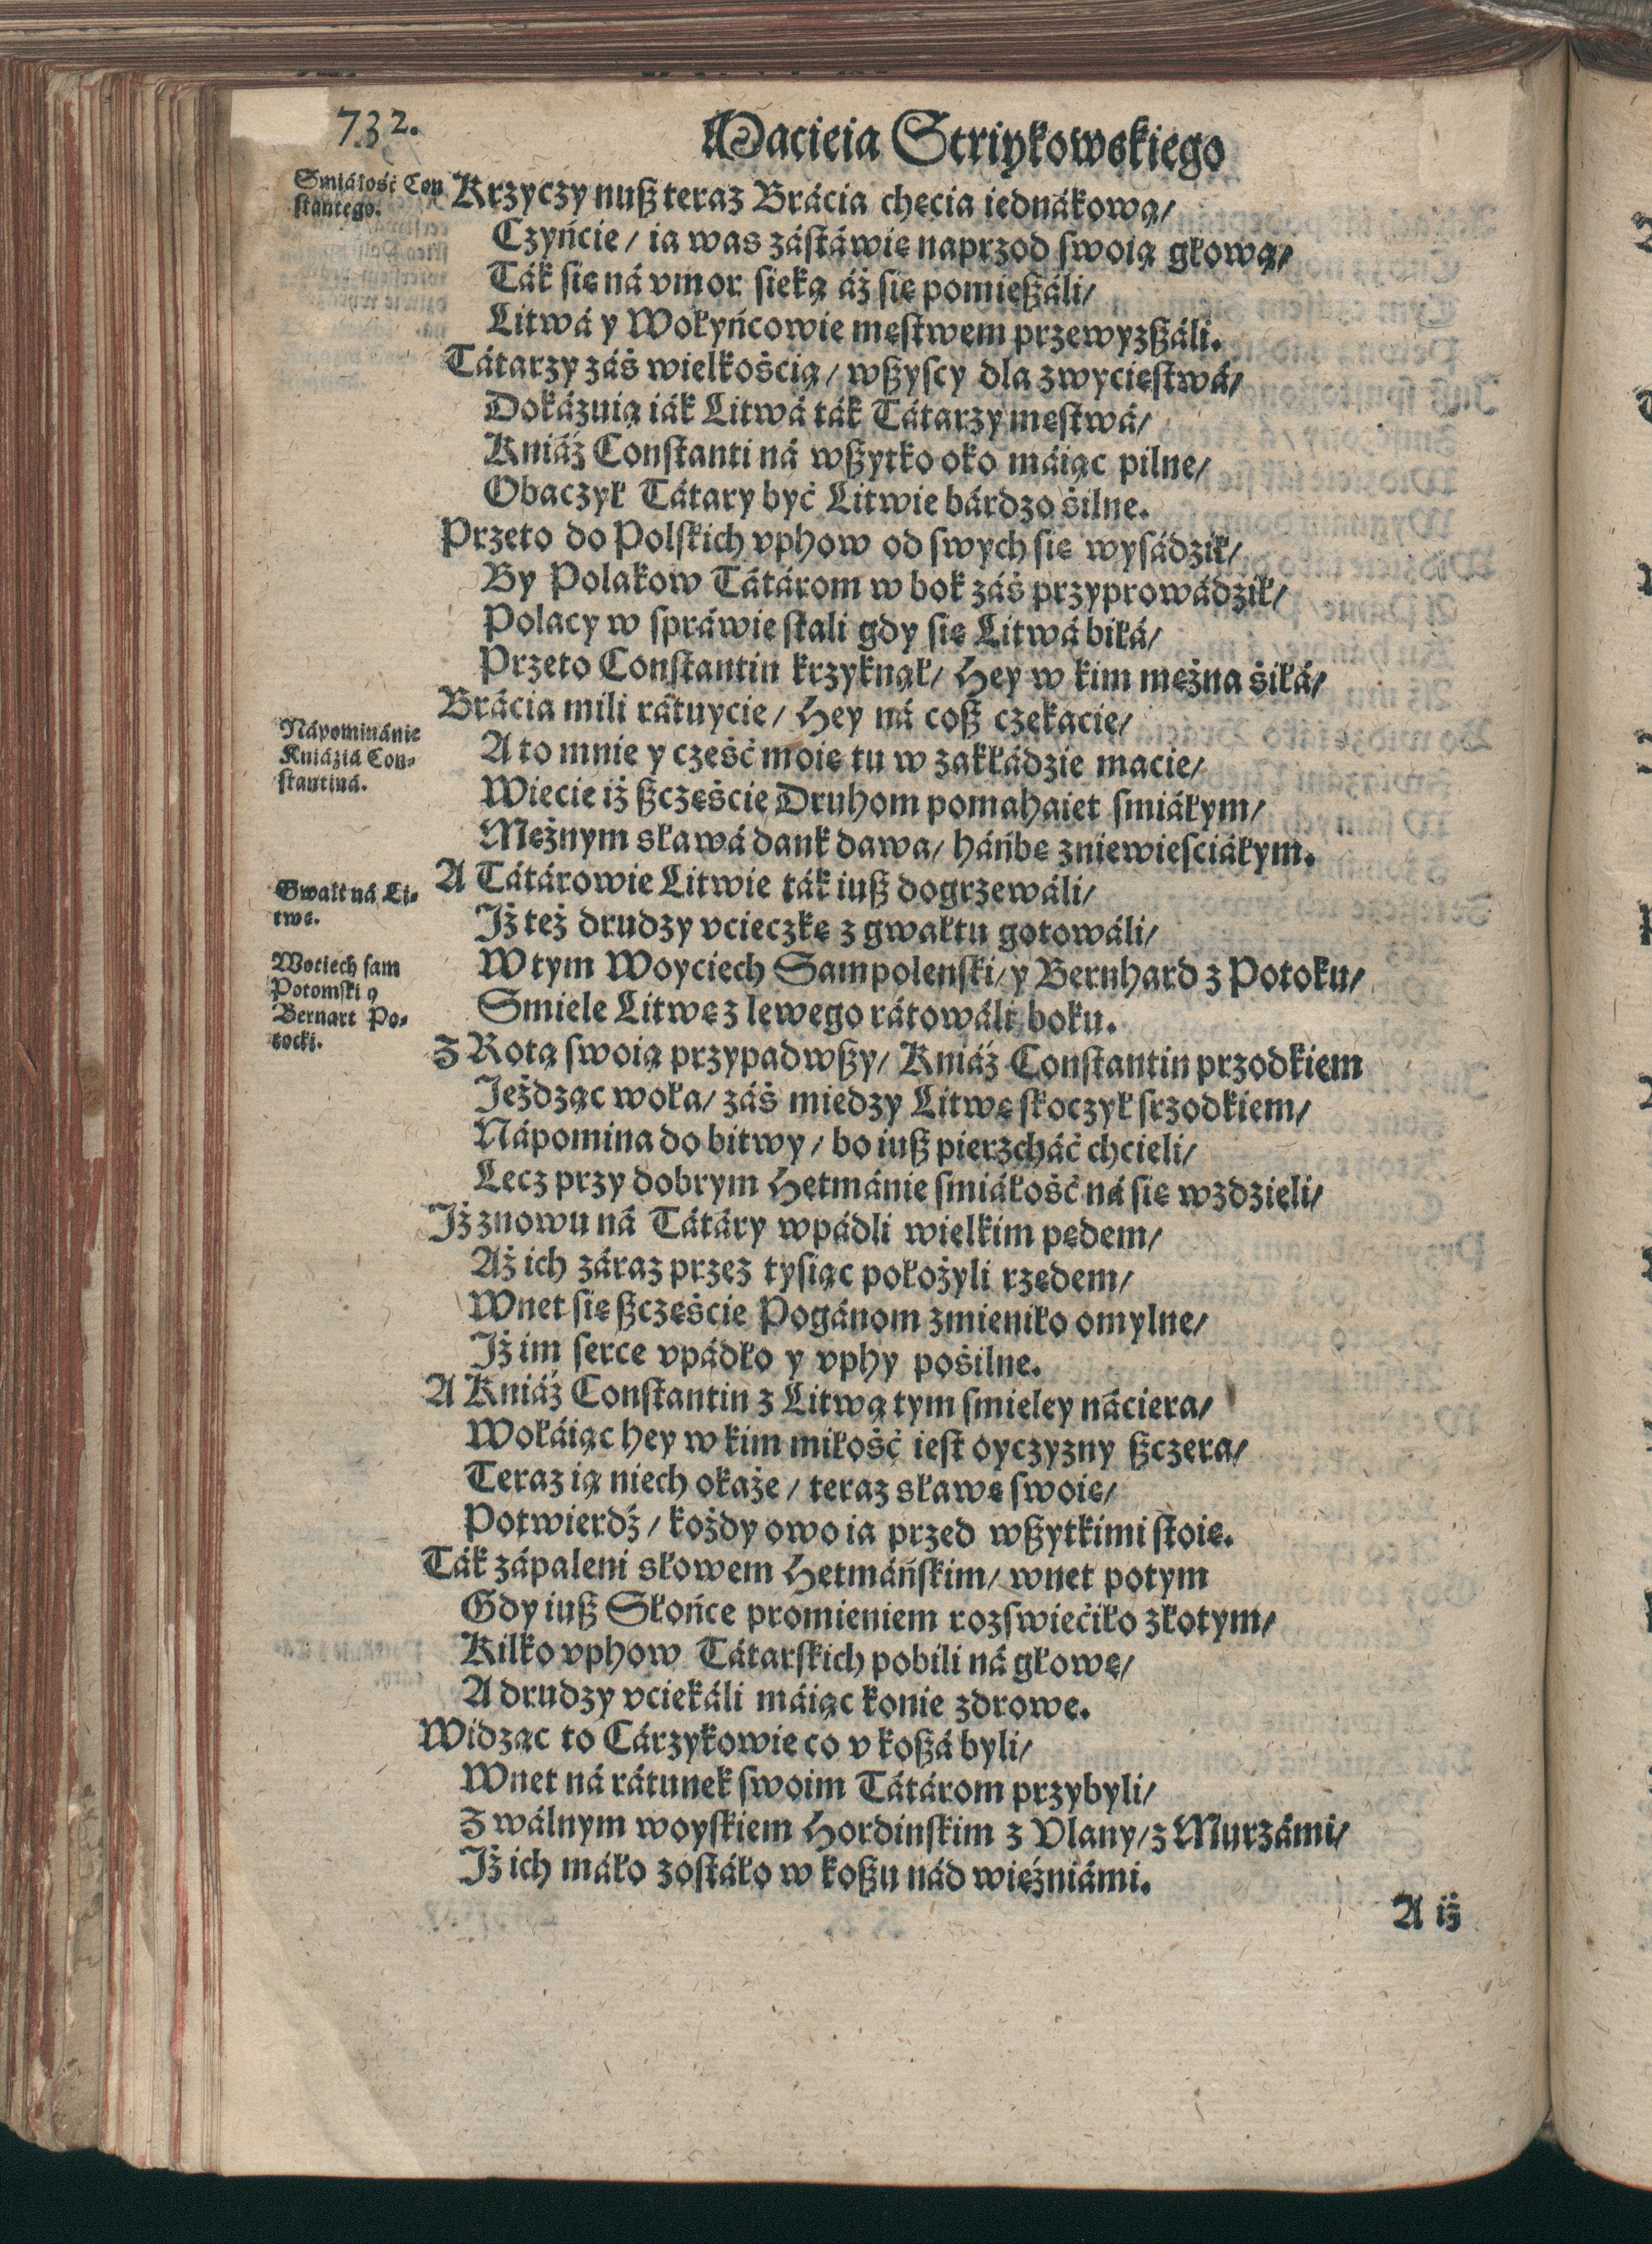 732.
Macieia Striykowskiego
Smiáłość Con
stantego.
Krzyczy nuß teraz Bráćia chęcia iednákową/
Czyńcie/ ia was zástáwię naprzod swoią głową/
Ták się ná vmor sieką áż się pomießáli/
Litwá y Wołyńcowie męstwem przewyzßáli.
Tátarzy záś wielkośćią/ wßyscy dla zwycięstwá/
Dokázuią iák Litwá ták Tátarzy męstwá/
Kniáź Constanti ná wßytko oko máiąc pilne/
Obaczył Tátary być Litwie bárdzo śilne.
Przeto do Polskich vphow od swych się wysádził/
By Polakow Tátárom w bok záś przyprowádził/
Polacy w spráwie stali gdy się Litwá biłá/
Przeto Constantin krzyknął/ Hey w kim mężna śiłá/
Brácia mili rátuycie/ Hey ná coß czekacie/
Nápominánie
Kniáziá Con-
stantiná.
A to mnie y cześć moię tu w zakłádzie macie/
Wiecie iż ßczęście Druhom pomahaiet smiáłym/
Mężnym sławá dank dawa/ háńbę zniewieściáłym.
Gwałt ná Li-
twę.
A Tátárowie Litwie ták iuß dogrzewáli/
Iż też drudzy vcieczkę z gwałtu gotowáli/
Wociech sam
Potomski y
Bernart Po-
tocki.
W tym Woyciech Sampolenski/ y Bernhard z Potoku/
Smiele Litwę z lewego rátowáli boku.
Z Rotą swoią przypadwßy/ Kniáź Constantin przodkiem
Ieżdząc woła/ záś miedzy Litwę skoczył srzodkiem/
Nápomina do bitwy/ bo iuß pierzcháć chcieli/
Lecz przy dobrym Hetmánie smiáłość ná się wzdzieli/
Iż znowu ná Tátáry wpádli wielkim pędem/
Aż ich záraz przez tysiąc położyli rzędem/
Wnet się ßczęście Pogánom zmieniło omylne/
Iż im serce vpádło y vphy pośilne.
A Kniáź Constantin z Litwą tym smieley náciera/
Wołáiąc hey w kim miłość iest oyczyzny ßczera/
Teraz ią niech okaże/ teraz sławę swoię/
Potwierdź/ kożdy owo ia przed wßytkimi stoię.
Ták zápaleni słowem Hetmáńskim/ wnet potym
Gdy iuß Słońce promieniem rozswiećiło złotym/
Kilko vphow Tátarskich pobili ná głowę/
A drudzy vciekáli máiąc konie zdrowe.
Widząc to Cárzykowie co v koßá byli/
Wnet ná rátunek swoim Tátárom przybyli/
Z wálnym woyskiem Hordinskim z Vlany/ z Murzámi/
Iż ich máło zostáło w koßu nád więźniámi.
A iż